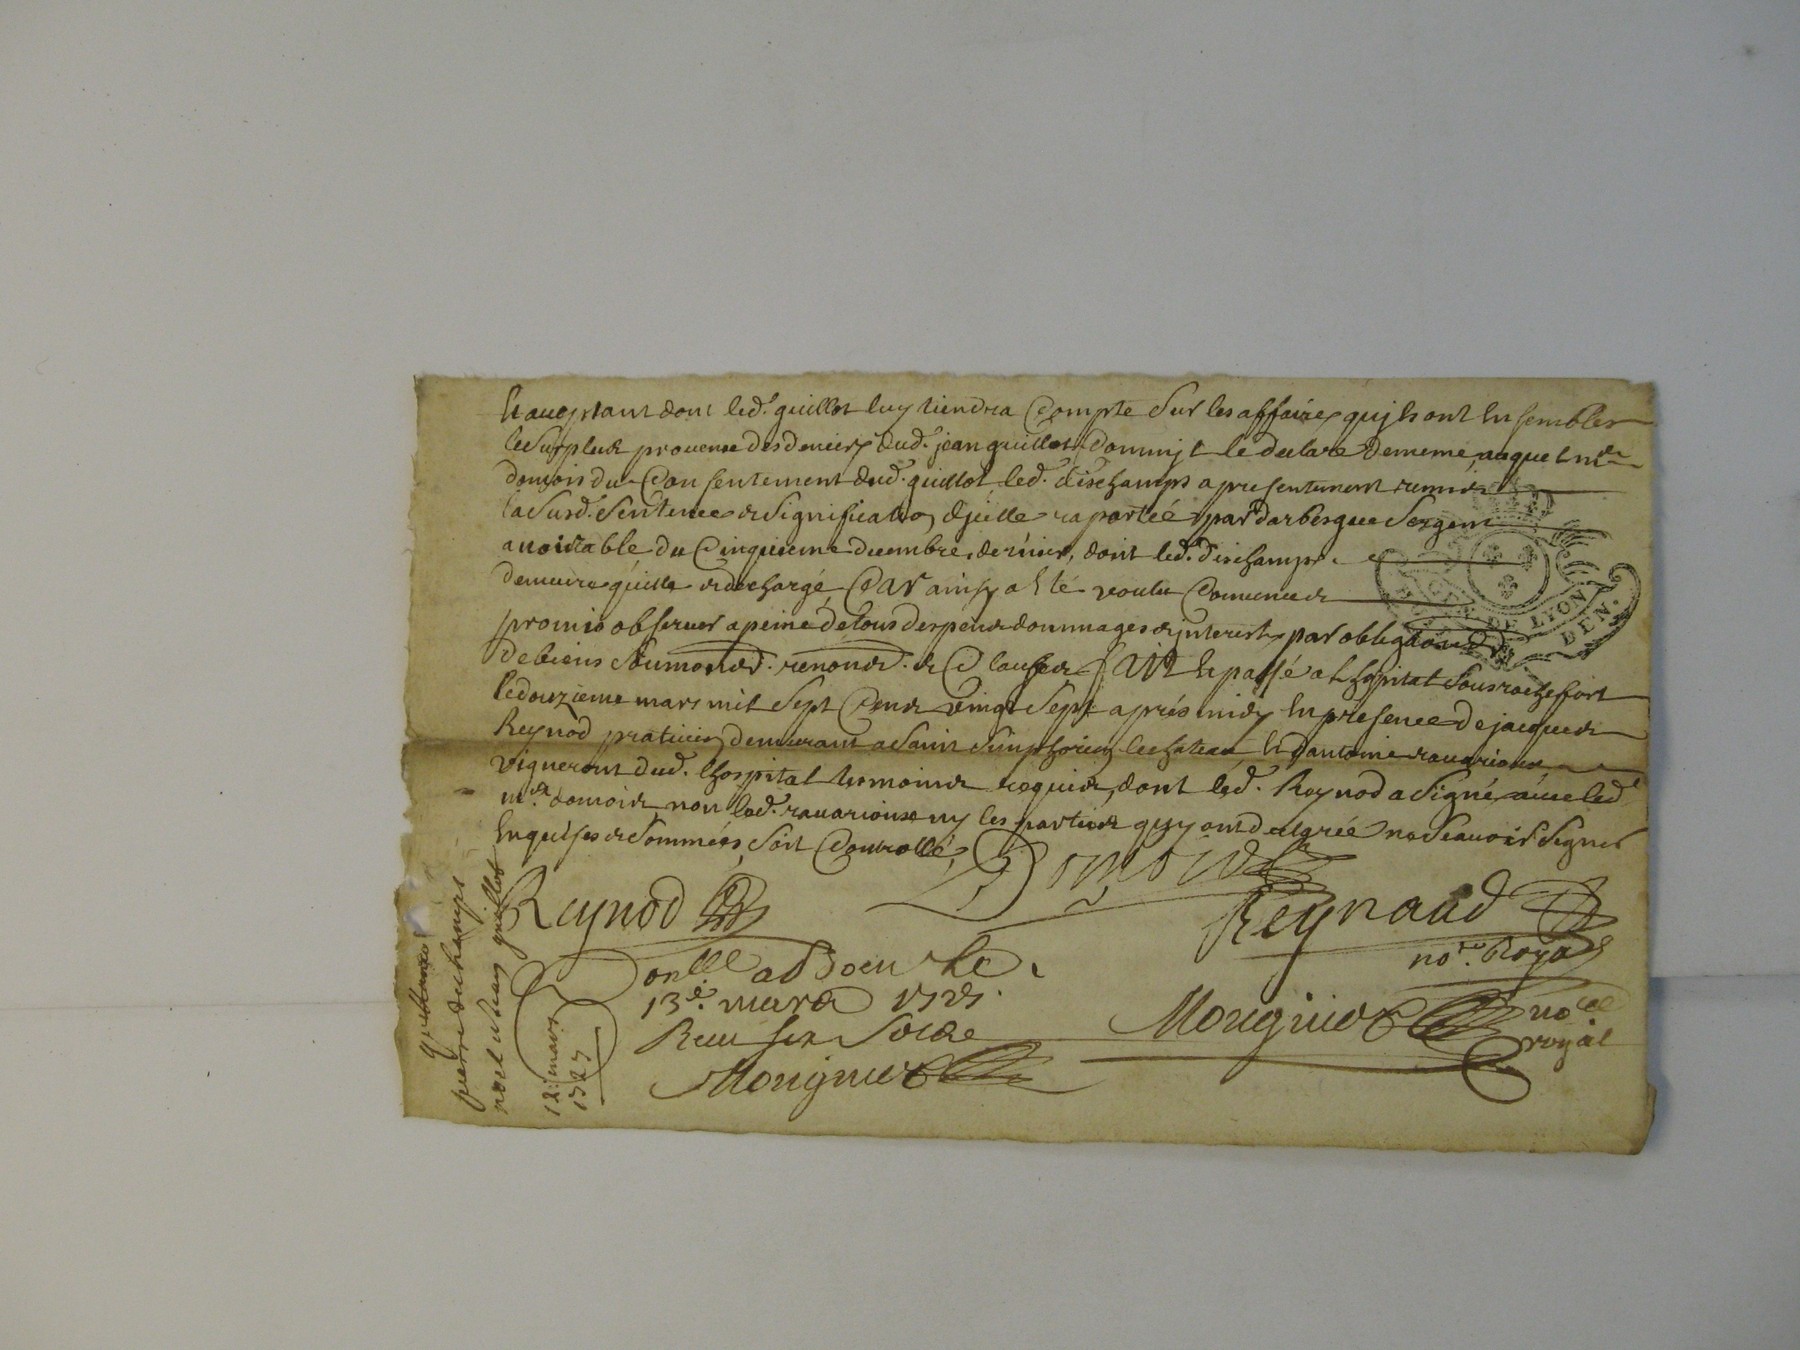 et aceptant dont led. guillot luy tiendra Compte Sur les affaires quils ont Ensembles
le Surplus provenue des deniers dud. jean guillot Comm Il le declare de meme, auquel me
domois du Consentement dud. guillot led. deschamps a presentement remis
la Susd. Sentence & Signification d'jcelle raportée par darbesque Sergent
a noirtable du Cinquieme decembre dernier, dont led. deschamps
demeure quitte & decharge Car ainsy a Eté voulu Convenu &
promis observer a peine de tous despens dommages & jnterests par obligaons
de biens Soumons. renons. & Clauses fait Et passé a lhopital Sous rochefort
le douzieme mars mil Sept Cens vingt Sept aprés midy En présence de jacques
Reynod praticien demeurant a Saint Simphorien le chateau Et d'antoine ravarioux
vigneront dud. lhospital temoins requis, dont led. Reynod a Signé avec led.
me. domois non led. ravarioux ny les parties qui ont declaré ne Scavoir Signer
Enquises & Sommées, Soit Controllé,
Reynod
Domois
Reynaud
nore. Royal
Conllé a Boen le
13e. mars 1727.
Receu six Sols
Mougniot
Mougniot
no
royal
quittance
pierre duchamps
noel et jean guillot
12: mars
1727
DE LYON
DEN.